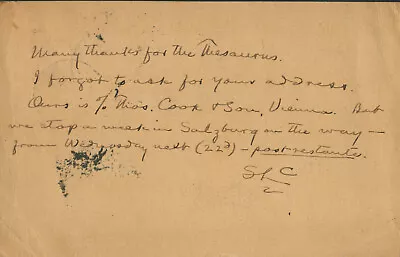 Many thanks for the Thesaurus.
I forgot to ask for your address.
Ours is % Thos. Cook & Son, Vienna. But
we stop a week in Salzburg on the way —
from Wednesday next (22d) — post-restante.
SLC